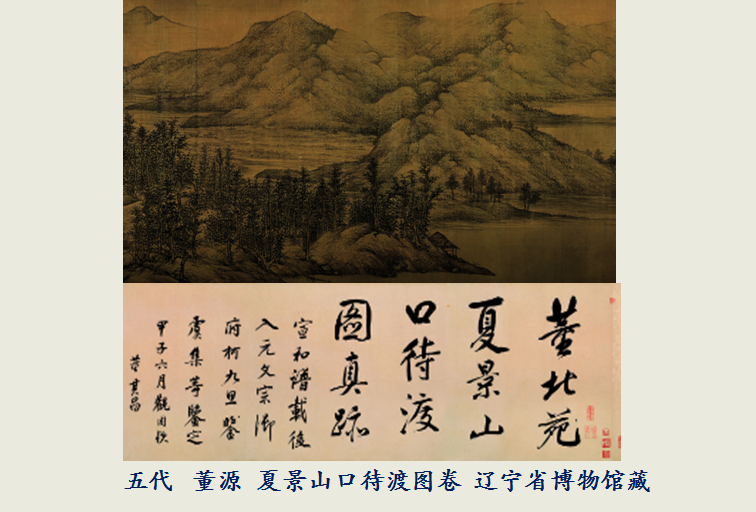 董北苑
夏景山
口待渡
圖真跡
宣和譜載後
入元文宗御
府柯九思鑒
虞集等鑒定
甲子六月觀因題
董其昌
五代 董源 夏景山口待渡图卷 辽宁省博物馆藏